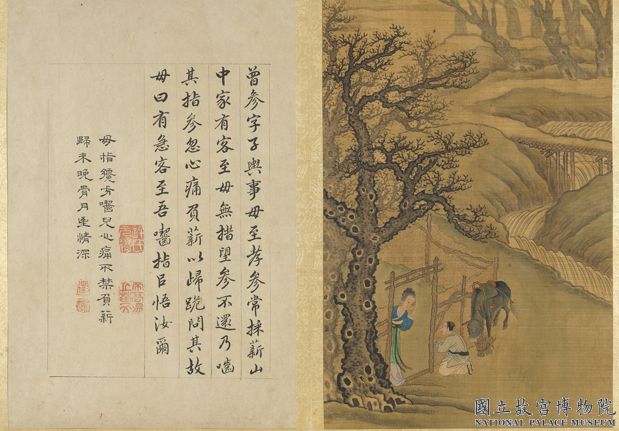 曾參字子輿事母至孝參常採薪山
中家有客至母無措望參不還乃嚙
其指參忽心痛負薪以歸跪問其故
母曰有急客至吾嚙指以悟汝爾
母指纔方嚙兒心痛不禁負薪
歸未晚骨肉至情深
國立故宮博物院
NATIONAL PALACE MUSEUM